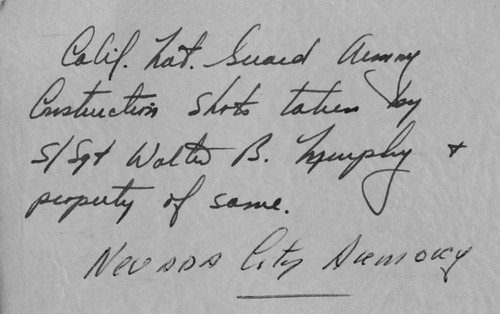 Calif. Nat. Guard Army
Construction shots taken by
S/Sgt Walter B. Murphy +
property of same.
Nevada City Armory